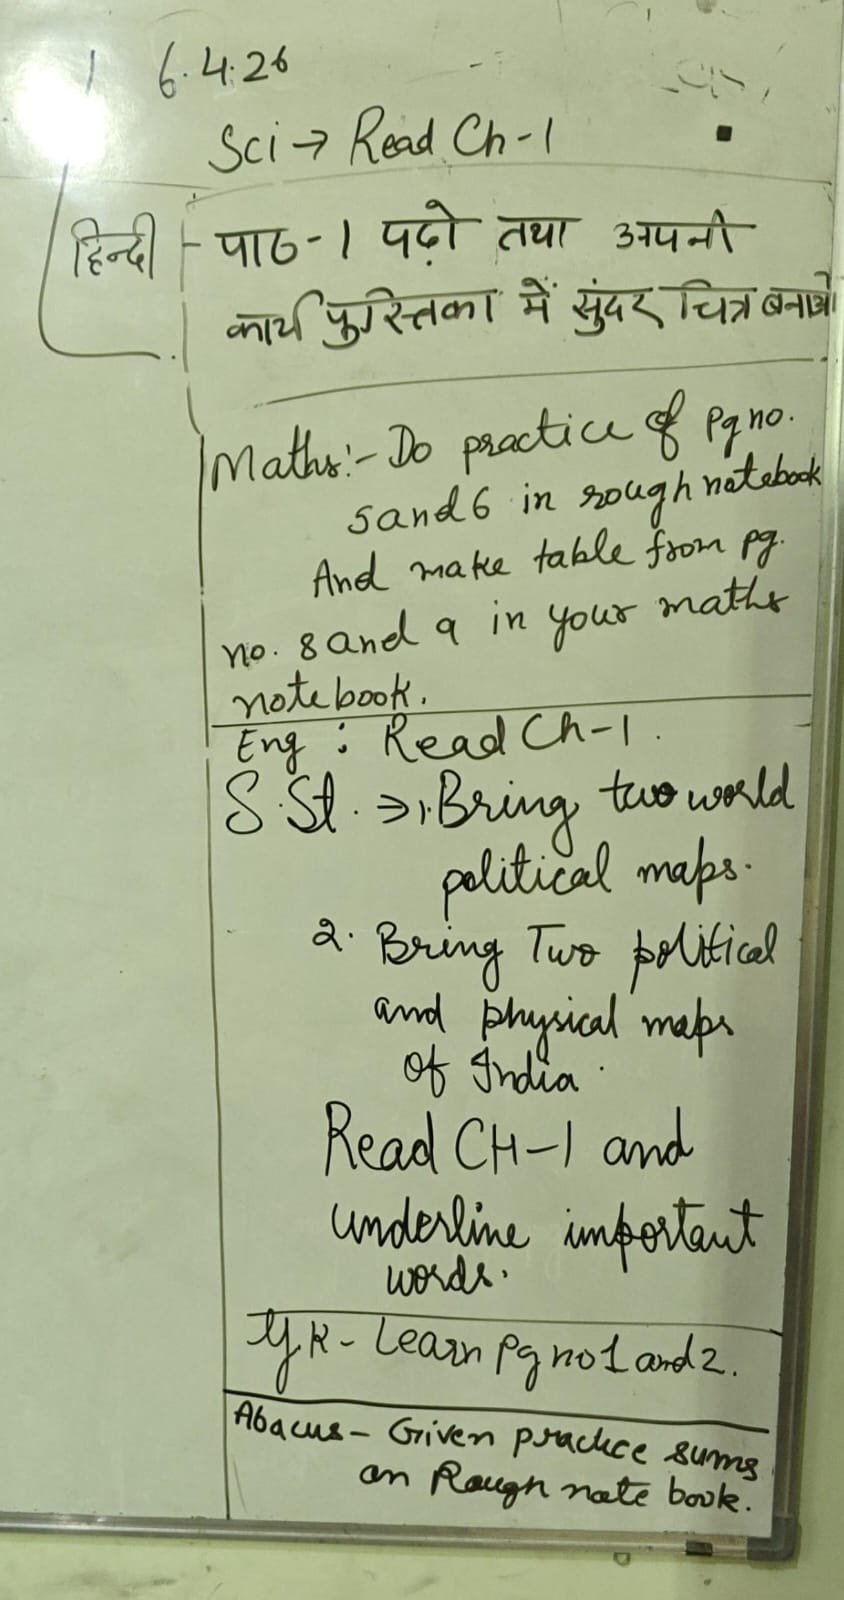 6.4.26
Sci → Read Ch-1
हिन्दी - पाठ-1 पढ़ो तथा अपनी
कार्य पुस्तिका में सुंदर चित्र बनाओ
Maths:- Do practice of pg no.
5 and 6 in rough notebook
And make table from pg.
no. 8 and 9 in your maths
notebook.
Eng : Read Ch-1.
S.St. ⇒ 1. Bring two world
political maps.
2. Bring Two political
and physical maps
of India.
Read CH-1 and
underline important
words.
G.K - Learn pg no 1 and 2.
Abacus - Given practice sums
on Rough note book.